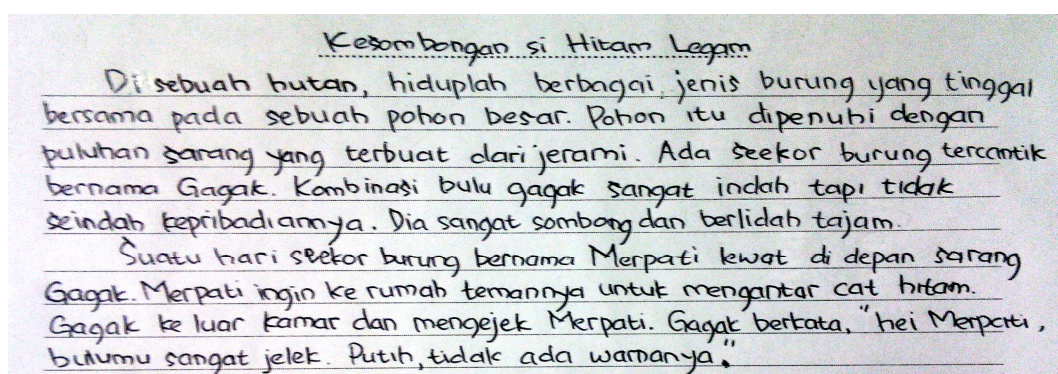 Kesombongan si Hitam Legam
Di sebuah hutan, hiduplah berbagai jenis burung yang tinggal
bersama pada sebuah pohon besar. Pohon itu dipenuhi dengan
puluhan sarang yang terbuat dari jerami. Ada seekor burung tercantik
bernama Gagak. Kombinasi bulu gagak sangat indah tapi tidak
seindah kepribadiannya. Dia sangat sombong dan berlidah tajam.
Suatu hari seekor burung bernama Merpati lewat di depan sarang
Gagak. Merpati ingin ke rumah temannya untuk mengantar cat hitam.
Gagak ke luar kamar dan mengejek Merpati. Gagak berkata, "hei Merpati,
bulumu sangat jelek. Putih, tidak ada warnanya."